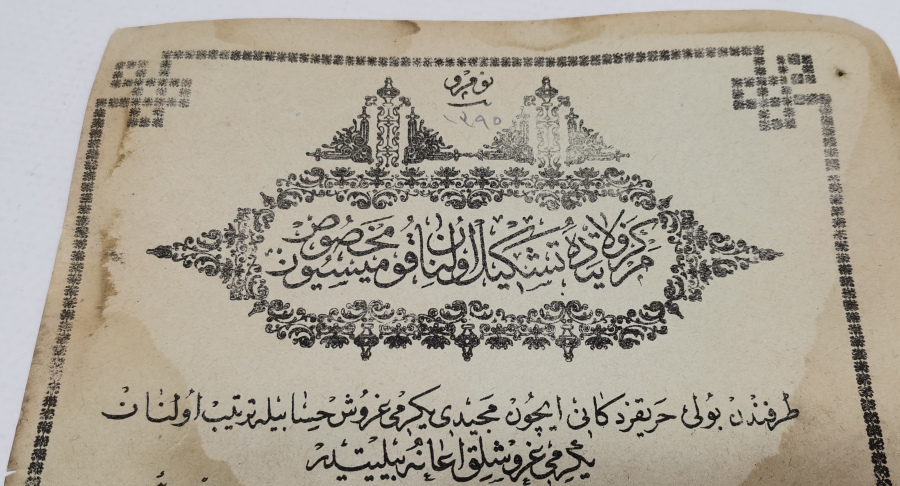 نومرو
١٢٩٥
مركز ولايتده تشكيل اولنان قوميسيون مخصوص
طرفندن بولى حريقزدكانى ايچون مجيدى يكرمى غروش حسابيله ترتيب اولنان
يكرمى غروشلق اعانه بيليتيدر